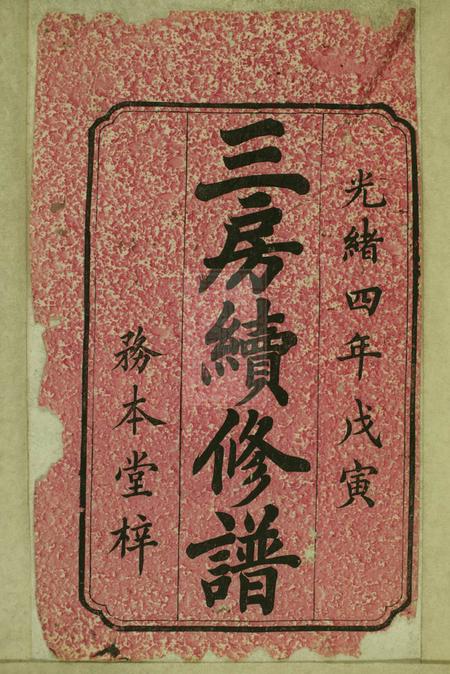 光緒四年戊寅
三房續修譜
務本堂梓